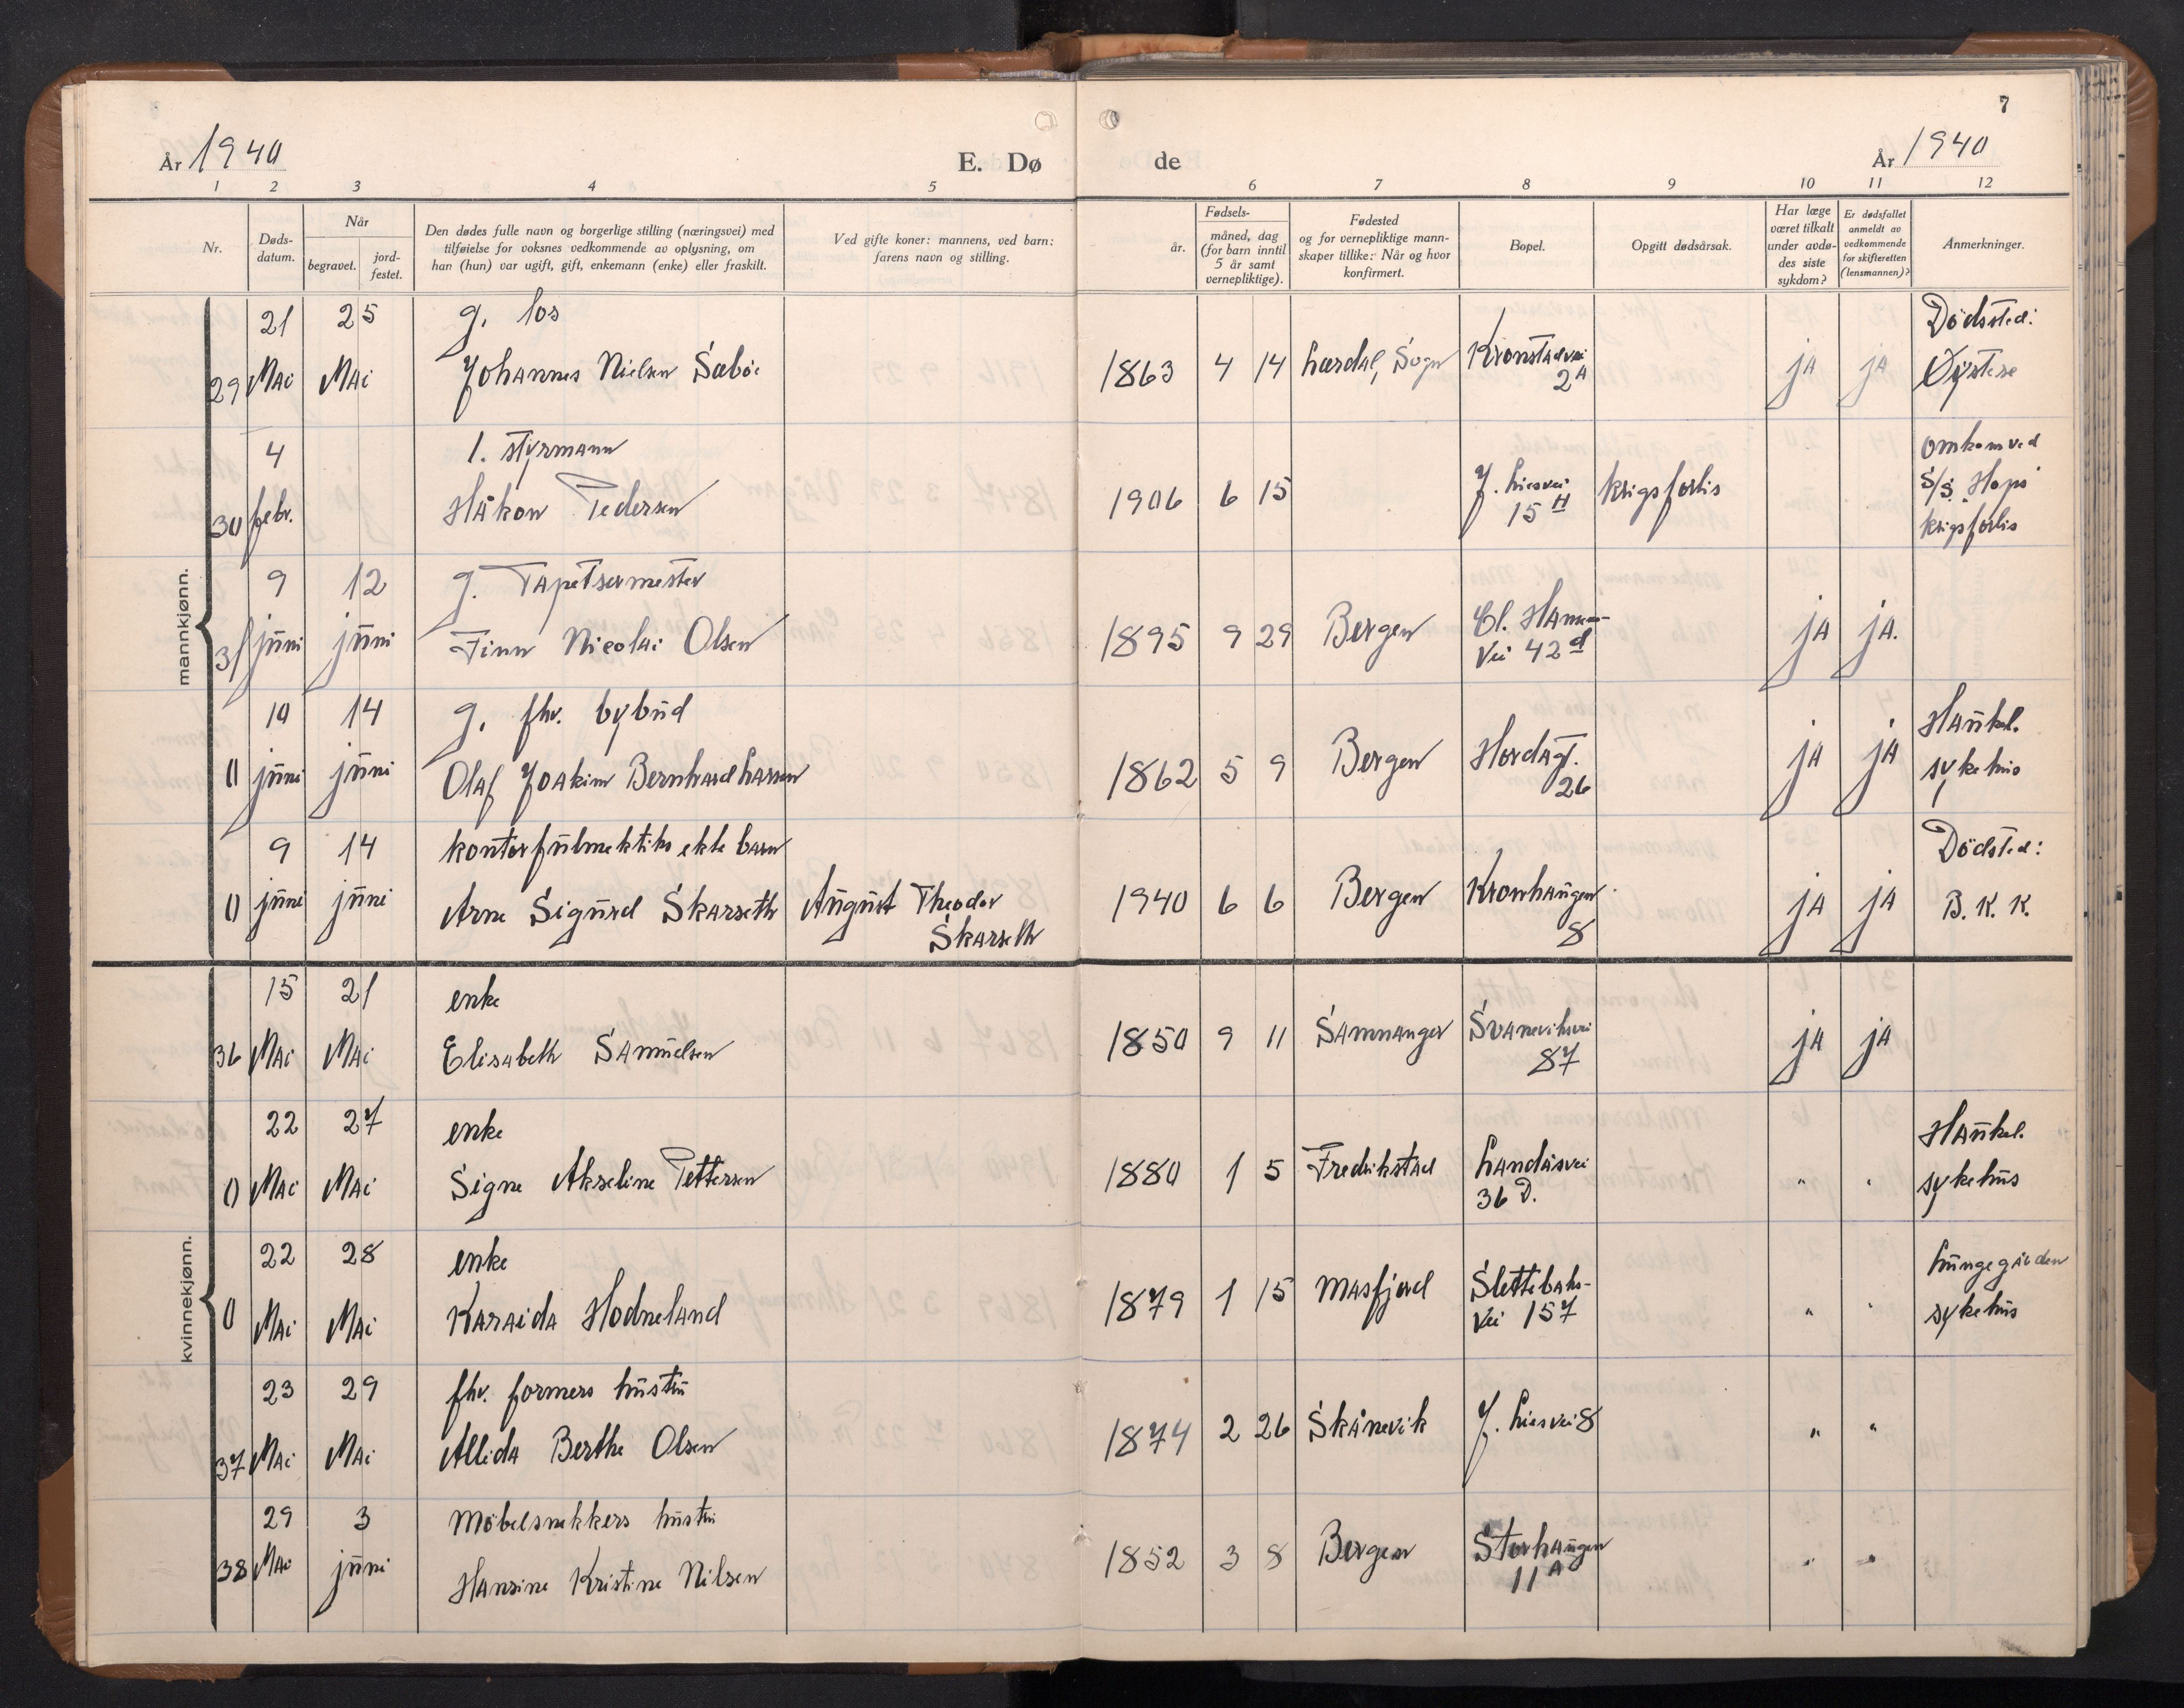 7
År 1940
E. Dø de
År 1940
1 2 3 4 5 6 7 8 9 10 11 12
Nr.
Døds-
datum.
Når
begravet.
jord-
festet.
Den dødes fulle navn og borgerlige stilling (næringsvei) med
tilføielse for voksnes vedkommende av oplysning, om
han (hun) var ugift, gift, enkemann (enke) eller fraskilt.
Ved gifte koner: mannens, ved barn:
farens navn og stilling.
år.
Fødsels-
måned, dag
(for barn inntil
5 år samt
vernepliktige).
Fødested
og for vernepliktige mann-
skaper tillike: Når og hvor
konfirmert.
Bopel.
Opgitt dødsårsak.
Har læge
været tilkalt
under avdø-
des siste
sykdom?
Er dødsfallet
anmeldt av
vedkommende
for skifteretten
(lensmannen)?
Anmerkninger.
mannkjønn.
21 25 g. los Dödssted:
29 Mai Mai Johannes Nielsen Sæböe 1863 4 14 Lærdal, Sogn Kronstadvei 2A ja ja Øystese
4 1. styrmann omkom ved
30 febr. Håkon Pedersen 1906 6 15 J. Liesvei 15 H krigsforlis S/S. "Hop"
krigsforlis
9 12 g. Tapetsermester
31 juni juni Finn Nicolai Olsen 1895 9 29 Bergen Vei 42 d ja ja.
10 14 g. fhv. bybud Haukel.
0 juni juni Olaf Joakim Bernhard Larsen 1862 5 9 Bergen Hordagt. 26 ja ja sykehus
9 14 kontorfulmektiks ekte barn Dödsted:
0 juni juni Arne Sigurd Skarseth August Theodor Skarseth 1940 6 6 Bergen Kronhaugen 8 ja ja B. K. K.
kvinnekjønn.
15 21 enke
36 Mai Mai Elisabeth Samuelsen 1850 9 11 Samnanger Svaneviksvei 87 ja ja
22 27 enke Haukel.
0 Mai Mai Signe Akseline Pettersen 1880 1 5 Fredrikstad Landåsvei 36 D. " " sykehus
22 28 enke Lungegården
0 Mai Mai Karaida Hodneland 1879 1 15 Masfjord Slettebaks-
Vei 157 " " sykehus
23 29 fhv. formers hustru
37 Mai Mai Allida Berthe Olsen 1874 2 26 Skånevik J. Liesvei 8 " "
29 3 Möbelsnekkers hustru
38 Mai juni Hansine Kristine Nilsen 1852 3 8 Bergen Storhaugen 11 A " "